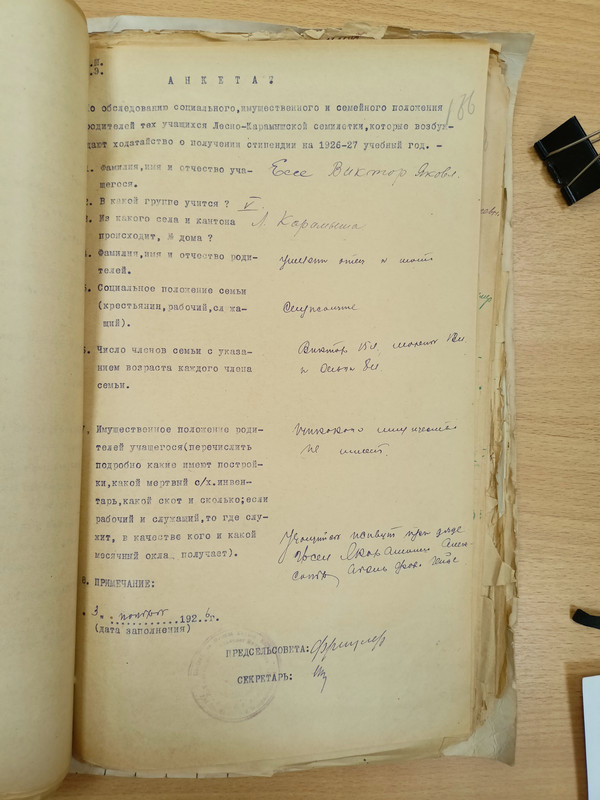 А Н К Е Т А ?
186
по обследованию социального,имущественного и семейного положения
родителей тех учащихся Лесно-Карамышской семилетки,которые возбуж-
дают ходатайство о получении стипендии на 1926-27 учебный год. -
1. Фамилия,имя и отчество уча-
щегося.
Ессе Виктор Яковл.
2. В какой группе учится ?
V.
3. Из какого села и кантона
происходит, № дома ?
Л. Карамыша
4. Фамилия,имя и отчество роди-
телей.
отец и мать
5. Социальное положение семьи
(крестьянин,рабочий,служа-
щий).
6. Число членов семьи с указа-
нием возраста каждого члена
семьи.
Виктор 15 л.
и 8 л.
7. Имущественное положение роди-
телей учащегося(перечислить
подробно какие имеют построй-
ки,какой мертвый с/х.инвен-
тарь,какой скот и сколько;если
рабочий и служащий,то где слу-
жит, в качестве кого и какой
месячный окла получает).
Никакого имущества
не имеет.
живут при дяде
8. ПРИМЕЧАНИЕ:
3 ноября 1926 г.
(дата заполнения)
ПРЕДСЕЛЬСОВЕТА:
СЕКРЕТАРЬ: